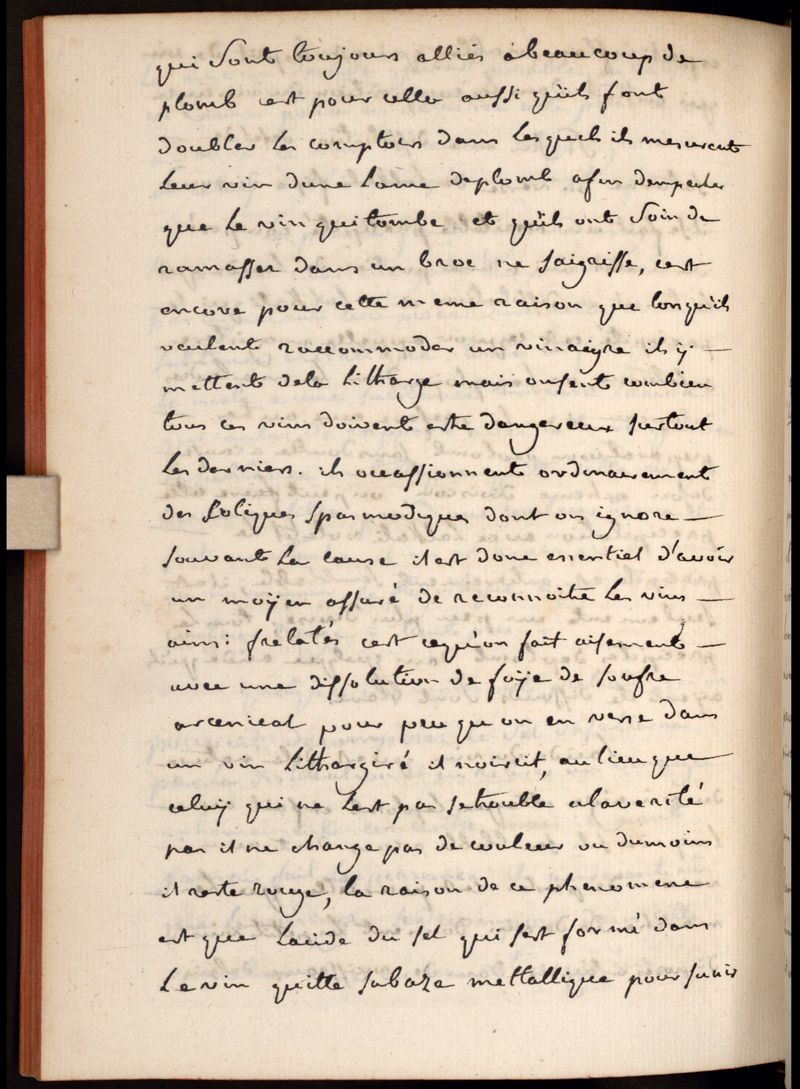 qui sont toujours alliés abeaucoup de
plomb cest pour cella aussi quils font
doubler les comptoirs dans les quels ils mesurent
leur vin dune lame deplomb afin dempecher
que le vin qui tombe et quils ont soin de
ramasser dans un broc ne saigrisse, cest
encore pour cette meme raison que lorsquils
veulent raccommoder un vinaigre ils ÿ —
mettent dela litharge mais onsent combien
tous ces vins doivent estre dangereux surtout
les derniers. ils occassionnent ordinairement
des coliques spasmodiques dont on ignore —
souvant la cause il est donc essentiel d'avoir
un moÿen assuré de reconnoitre les vins —
ainsi frelatés cest cequ'on fait aisement —
avec une dissolution de foÿe de soufre
arcenical pour peu qu on en verse dans
un vin lithargiré il noircit, au lieu que
celuÿ qui ne lest pas setrouble alaverité
pas il ne change pas de couleur ou dumoins
il reste rouge, la raison de ce phenomene
est que lacide du sel qui sest formé dans
le vin quitte sabaze mettallique pour sunir